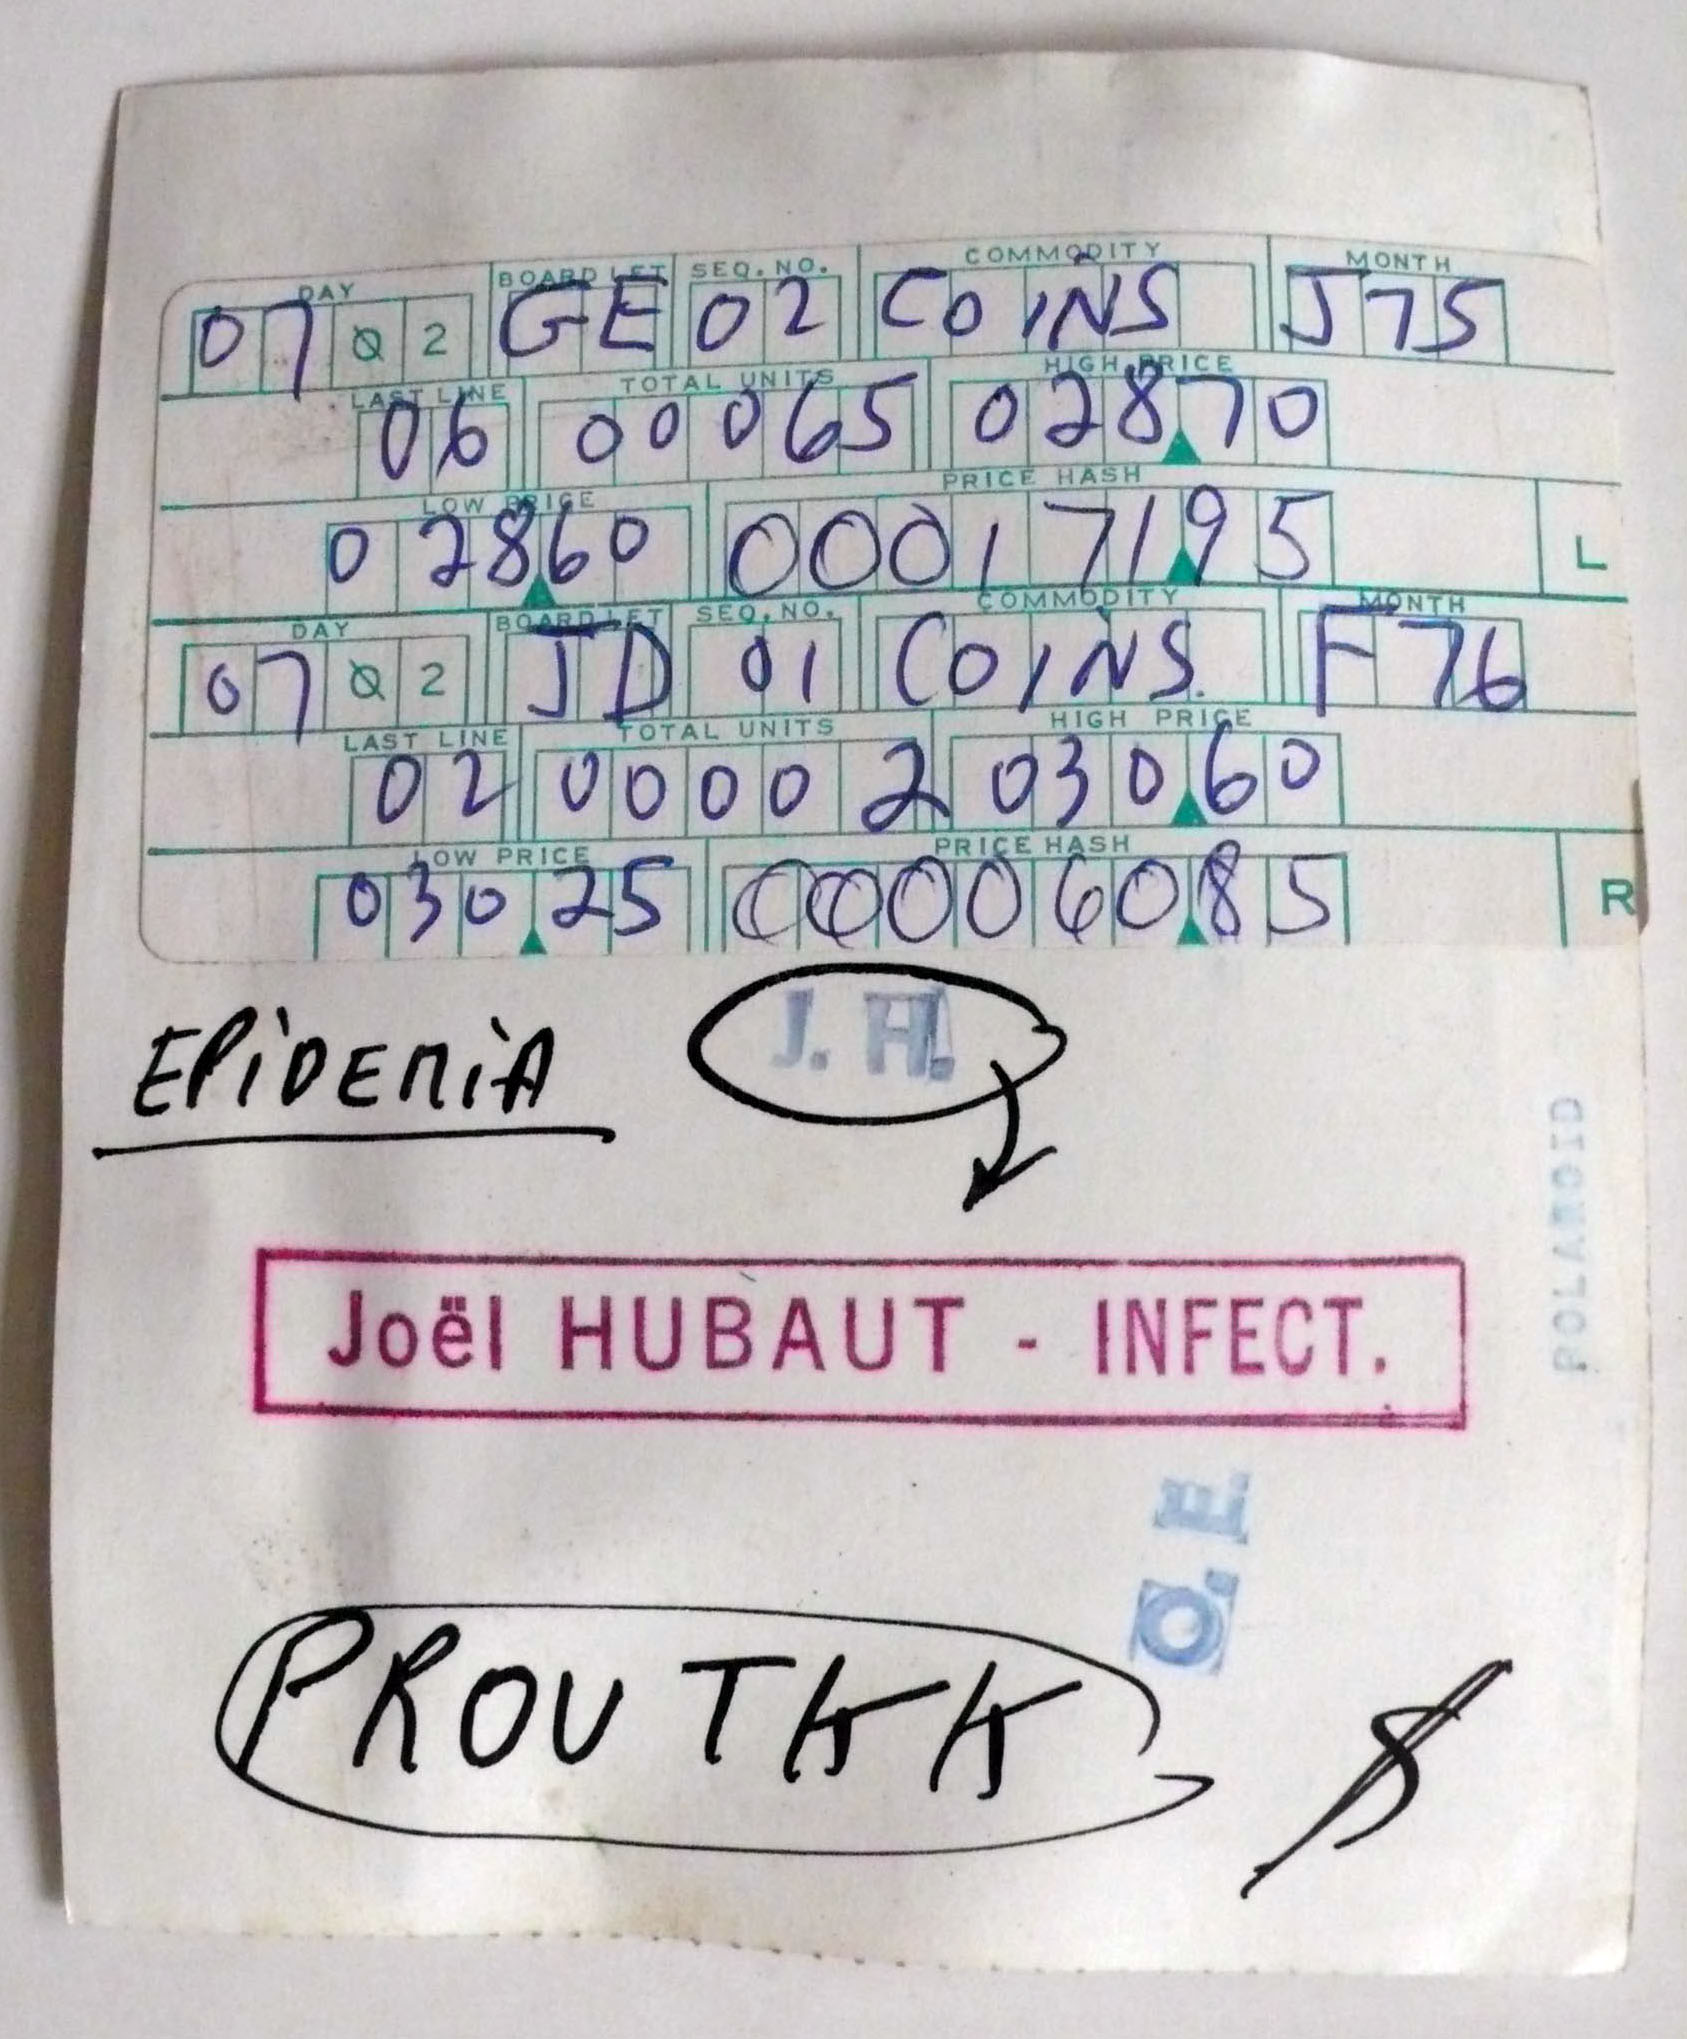 DAY BOARD LET SEQ. NO. COMMODITY MONTH
07 02 GE 02 COINS J75
LAST LINE TOTAL UNITS HIGH PRICE
06 00065 02870
LOW PRICE PRICE HASH
02860 00017195 L
DAY BOARD LET SEQ. NO. COMMODITY MONTH
07 02 JD 01 COINS. F76
LAST LINE TOTAL UNITS HIGH PRICE
02 00002 03060
LOW PRICE PRICE HASH
03025 00006085 R
EPIDEMIA J. H.
POLAROID
Joël HUBAUT - INFECT.
O. E.
PROUTKK